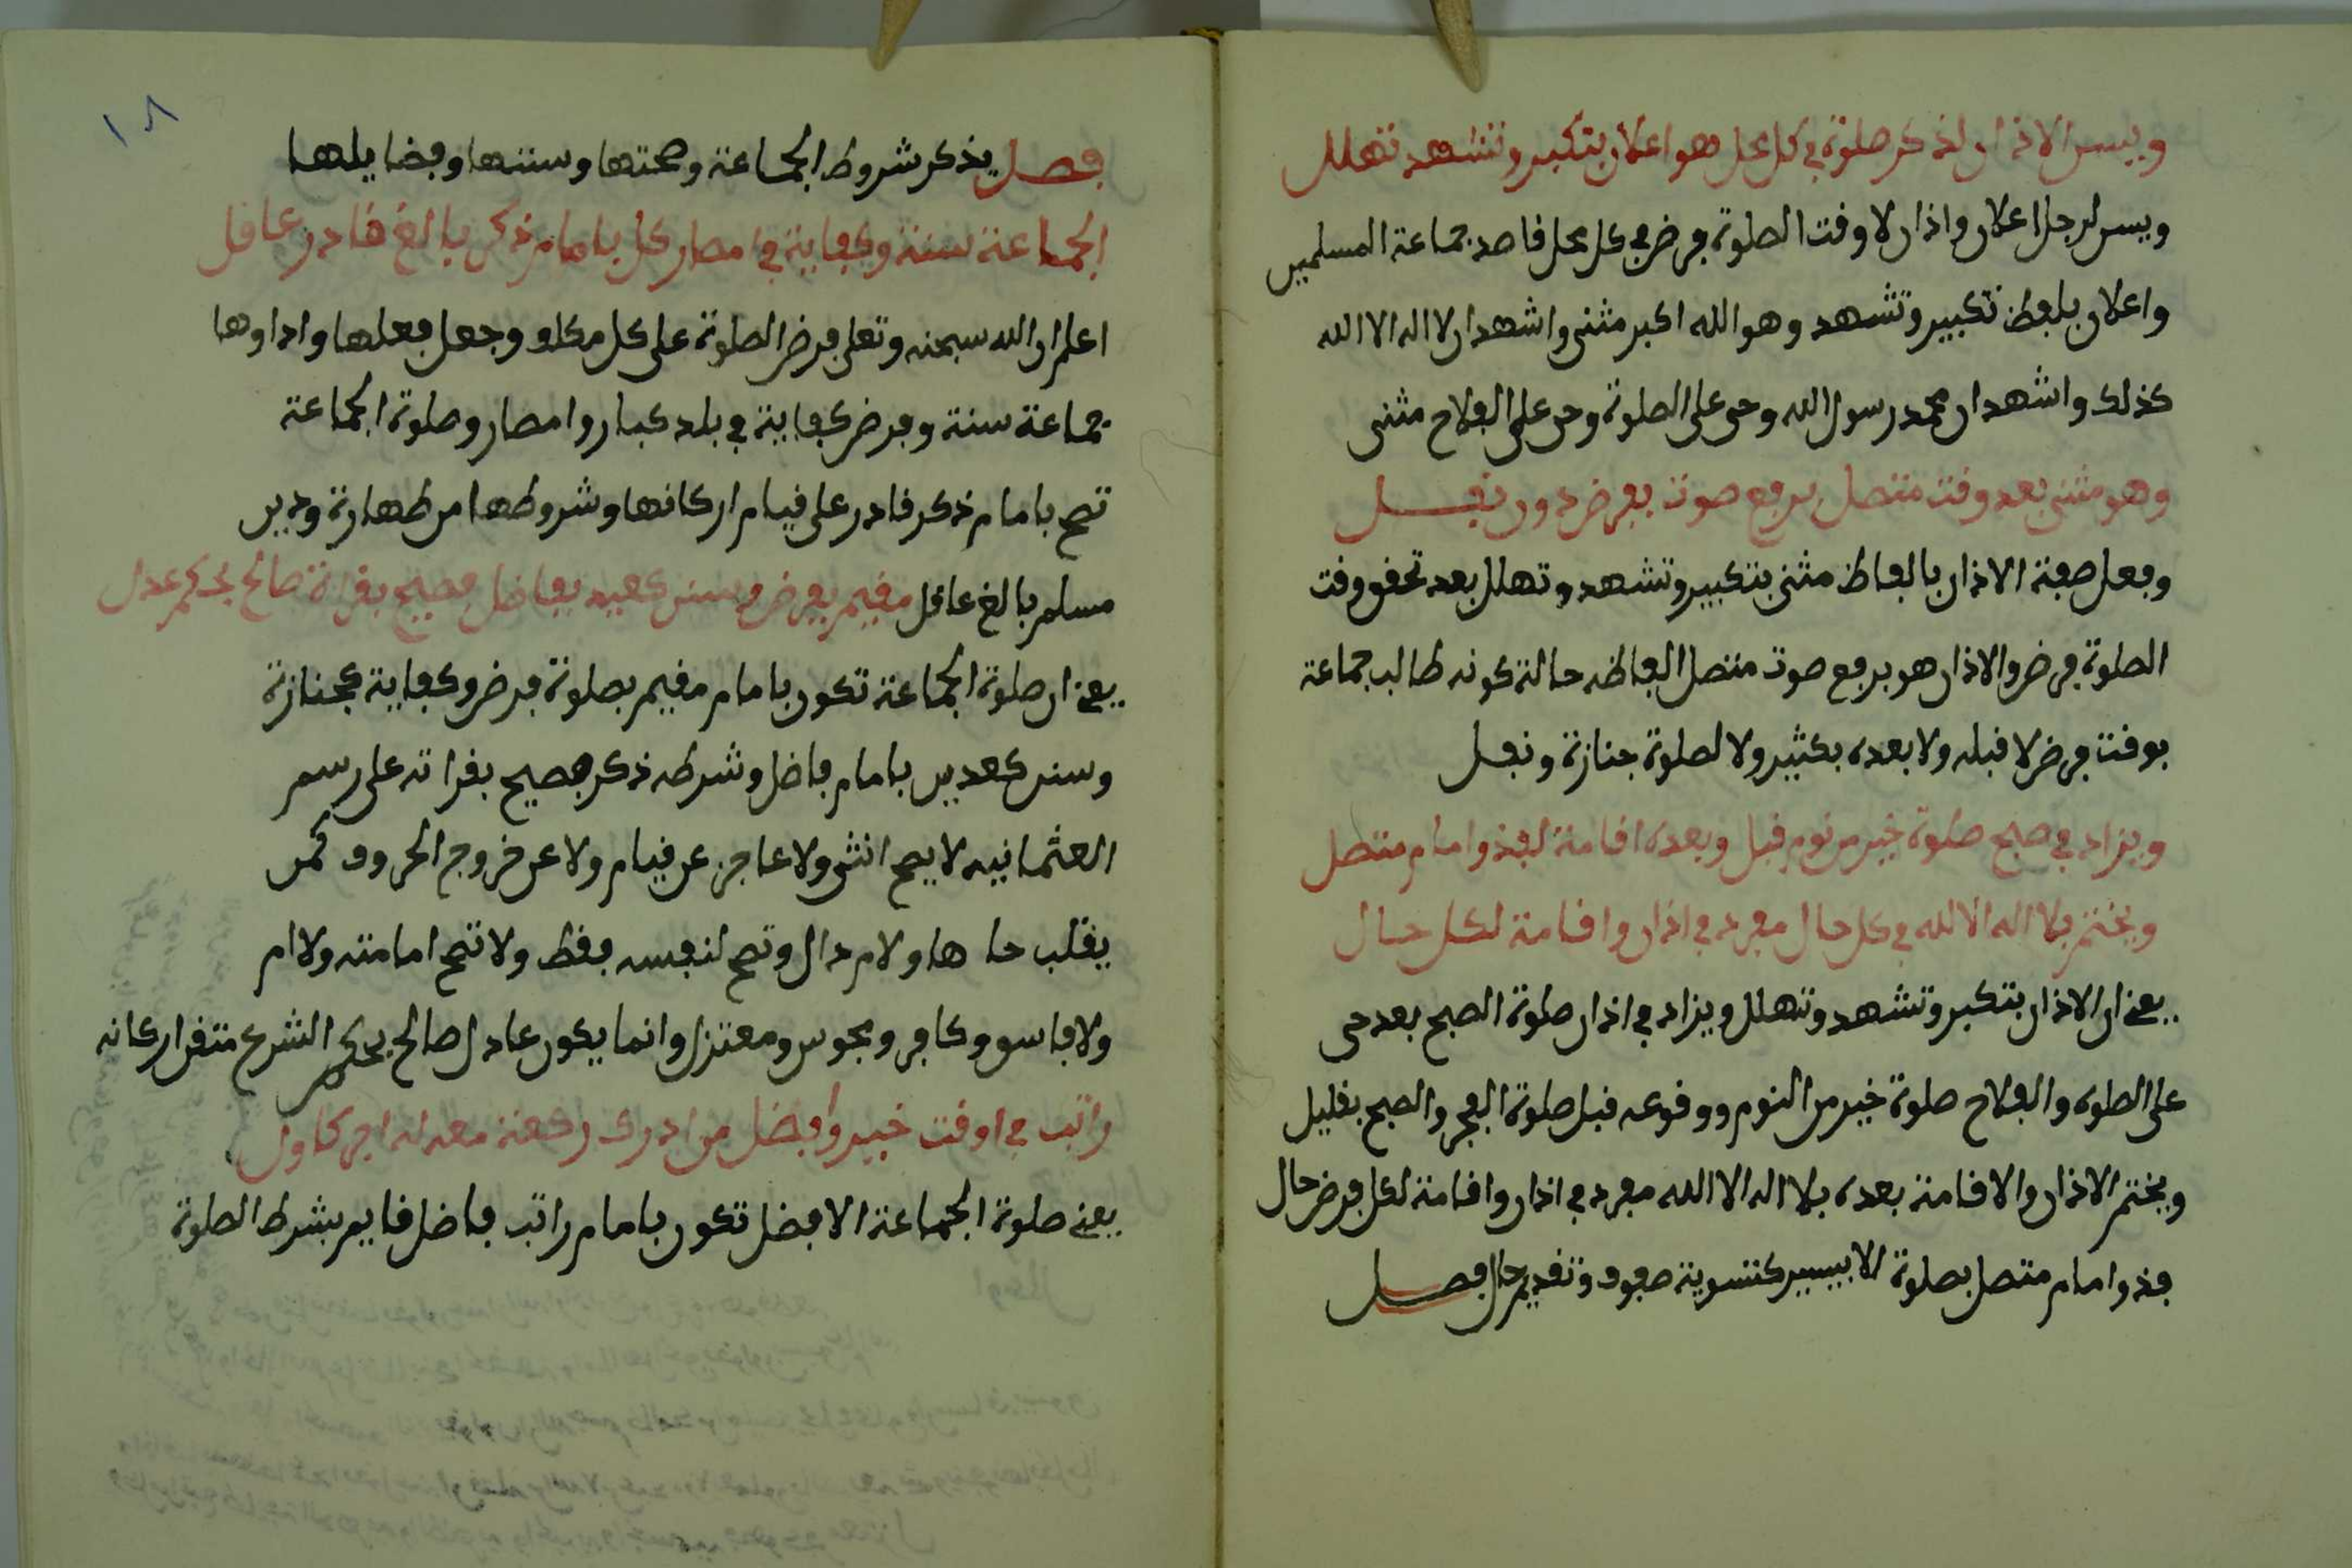 ويسن الاذان لذكر صلوة في كل محل هو اعلان بتكبير وتشهد تهلل
ويسن لرجل اعلان واذان لاوقت الصلوة فرض في كل محل قاصد جماعة المسلمين
واعلان بلفظ تكبير وتشهد وهو الله اكبر مثنى واشهد ان لا اله الا الله
كذلك واشهد ان محمد رسول الله وحي على الصلوة وحي على الفلاح مثنى
وهو مثنى بعد وقت متصل برفع صوت بفرض دون نفل
وفعل صفة الاذان بالفاظ مثنى بتكبير وتشهد وتهلل بعد تحقق وقت
الصلوة فرض والاذان هو برفع صوت متصل الفاظه حالة كونه طالب جماعة
بوقت فرض لا قبله ولا بعده بكثير ولا لصلوة جنازة ونفل
ويزاد في صبح صلوة خير من نوم قبل وبعده اقامة لفذ وامام متصل
ويختتم بلا اله الا الله في كل حال مفرد في اذان واقامة لكل حال
يعني ان الاذان بتكبر وتشهد وتهلل ويزاد في اذان صلوة الصبح بعد حي
على الصلوه والفلاح صلوة خير من النوم ووقوعه قبل صلوة الفجر والصبح بقليل
ويختم الاذان والاقامة بعده بلا اله الا الله مفرد في اذان واقامة لكل فرض حال
فذ وامام متصل بصلوة الا بيسير كتسوية صفوف وتقديم رجال فصل
١٨
فصل يذكر شروط الجماعة وصحتها وسننها وفضايلها
الجماعة سنة وكفاية في امصار كل بامام ذكر بالغ قادر عاقل
اعلم ان الله سبحنه وتعلى فرض الصلوة على كل مكلف وجعل فعلها واداوها
جماعة سنة وفرض كفاية في بلد كبار وامصار وصلوة الجماعة
تصح بامام ذكر قادر على قيام اركانها وشروطها من طهارة ودين
مسلم بالغ عاقل مقيم بفرض وسنن كعيد بفاضل فصيح بقراة صالح بحكم عدل
يعني ان صلوة الجماعة تكون بامام مقيم بصلوة فرض وكفاية كجنازة
وسنن كعدين بامام فاضل وشرطه ذكر فصيح بقراته على رسم
العثمانيه لا يصح انثى ولا عاجز عن قيام ولا عن خروج الحروف كمن
يقلب حا ها ولام دال وتصح لنفسه فقط ولا تصح امامته ولا ام
ولا فاسق وكافر ومجوس ومعتزل وانما يكون عادل صالح بحكم الشرع متقن اركانه
راتب في اوقت خير وافضل من ادرك ركعة معه له اجر كاول
يعني صلوة الجماعة الافضل تكون بامام راتب فاضل قايم بشرط الصلوة